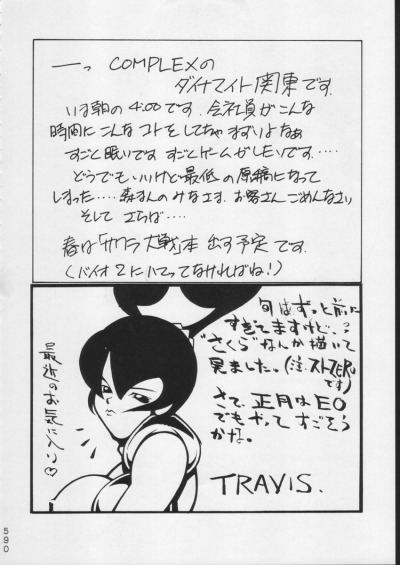 一っ COMPLEXの
ダイナマイト関東です。
いま朝の4:00です。会社員がこんな
時間にこんなコトをしてちゃまずいよなぁ
すごく眠いです すごくゲームがしたいです‥‥
どうでもいいけど最低の原稿になって
しまった‥‥森さんのみなさま、お客さんごめんなさい
そして さらば‥‥
春は「サクラ大戦」本 出す予定です。
(バイオ2にハマってなければね!)
旬はずっと前に
すぎてますけど‥?
"さくら"なんか描いて
見ました。(注:ストZERO
です)
さて、正月はEO
でもやってすごそう
かな。
TRAVIS.
最近のお気に入り♡
590